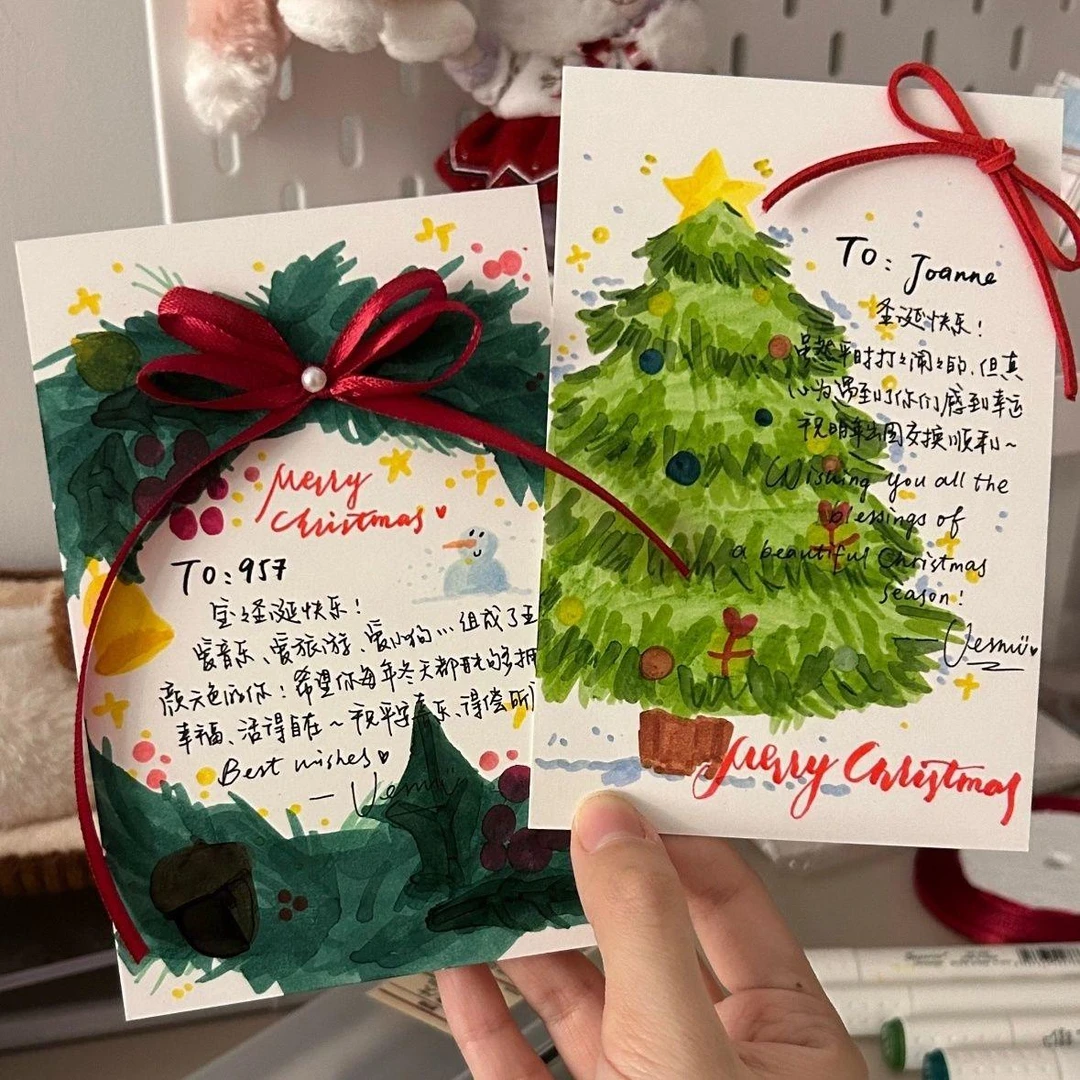 Merry
Christmas
TO: 957
宝々圣诞快乐!
爱音乐、爱旅游、爱小狗… 组成了五
颜六色的你! 希望你每年冬天都能够多拥
幸福、活得自在~ 祝平安喜乐、得偿所
Best wishes
— Vemii
TO: Joanne
圣诞快乐!
虽然平时打々闹々的,但真
心为遇到你们感到幸运
祝明年出国交换顺利~
Wishing you all the
blessings of
a beautiful Christmas
season!
— Vemii
Merry Christmas